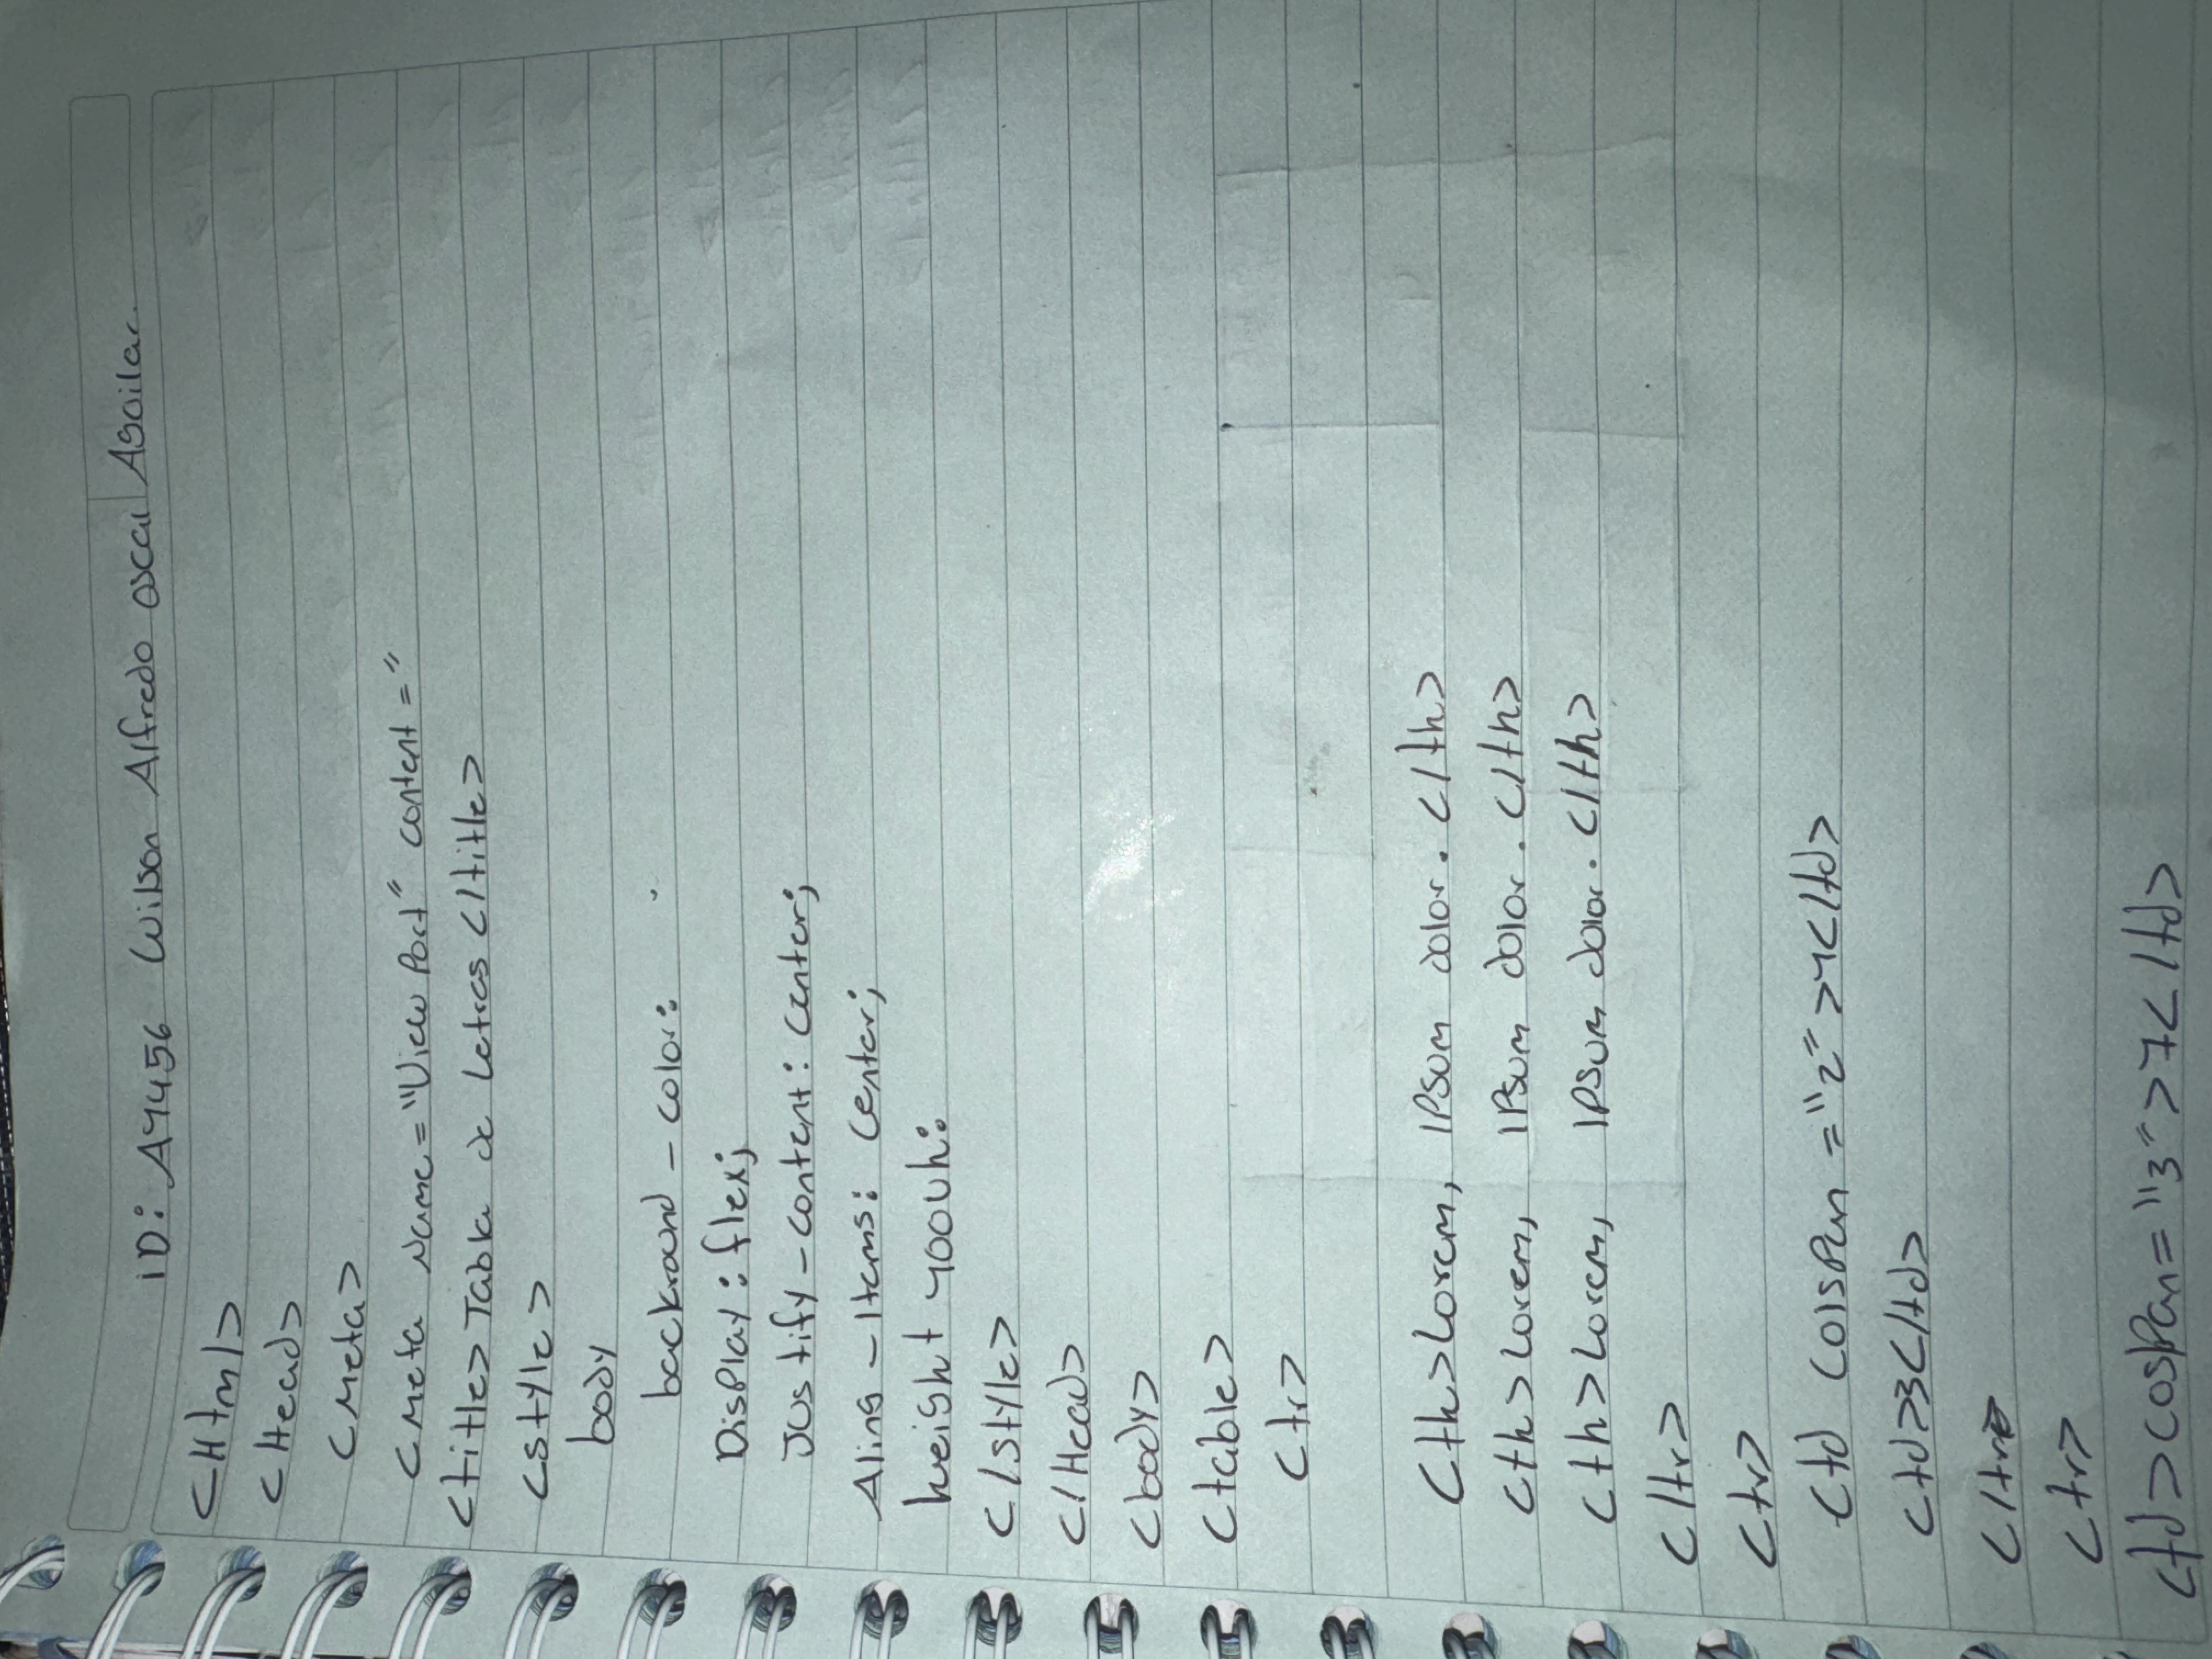 iD: A4456 Wilson Alfredo oscal Agoilar.
<Html>
<Head>
<meta>
<meta name="View Port" content="
<title>Tabla de Letras</title>
<style>
body
backround-color:
Display: flex;
Justify-content: center;
Aling-Items: center;
height 400vh:
</style>
</Head>
<body>
<table>
<tr>
<th>Lorem, IPsum dolor.</th>
<th>Lorem, IPsum dolor.</th>
<th>Lorem, IPsum dolor.</th>
</tr>
<tr>
<td colsPan="2">4</td>
<td>3</td>
</tr>
<tr>
<td>cosPan="3">7</td>